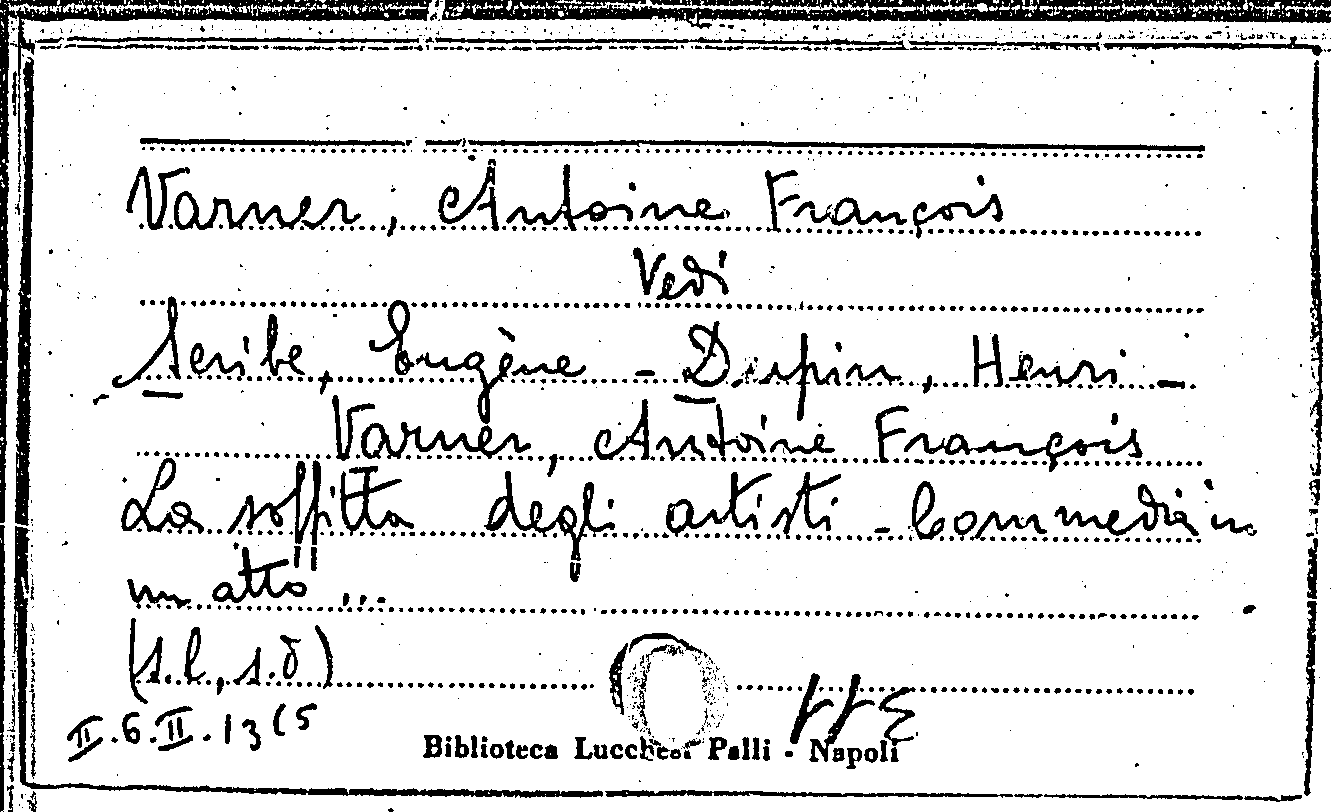 Varner, Antoine François
Vedi
Scribe, Eugène - Dupin, Henri -
Varner, Antoine François
La soffitta degli artisti - Commedia in
un atto ...
(s.l., s.d)
II.6.II.13 (5
Biblioteca Lucchesi Palli - Napoli